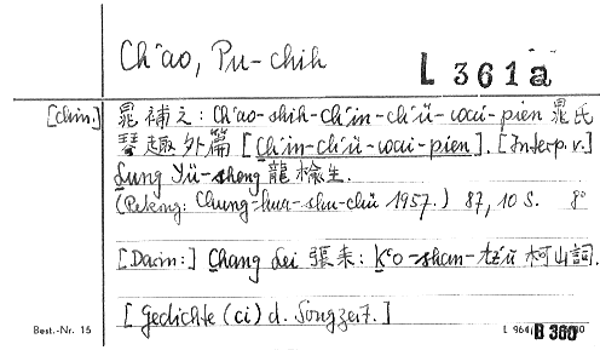 Ch'ao, Pu-chih
L 361a
[chin.] 晁補之: Ch'ao-shih-ch'in-ch'ü-wai-pien 晁氏
琴趣外篇 [Ch'in-ch'ü-wai-pien]. [Interp. v.]
Lung Yü-sheng 龍榆生.
(Peking: Chung-hua-shu-chü 1957.) 87, 10 S. 8°
[Darin:] Chang Lei 張耒: K'o-shan-tz'ü 柯山詞.
[Gedichte (ci) d. Songzeit.]
Best.-Nr. 15
B 360